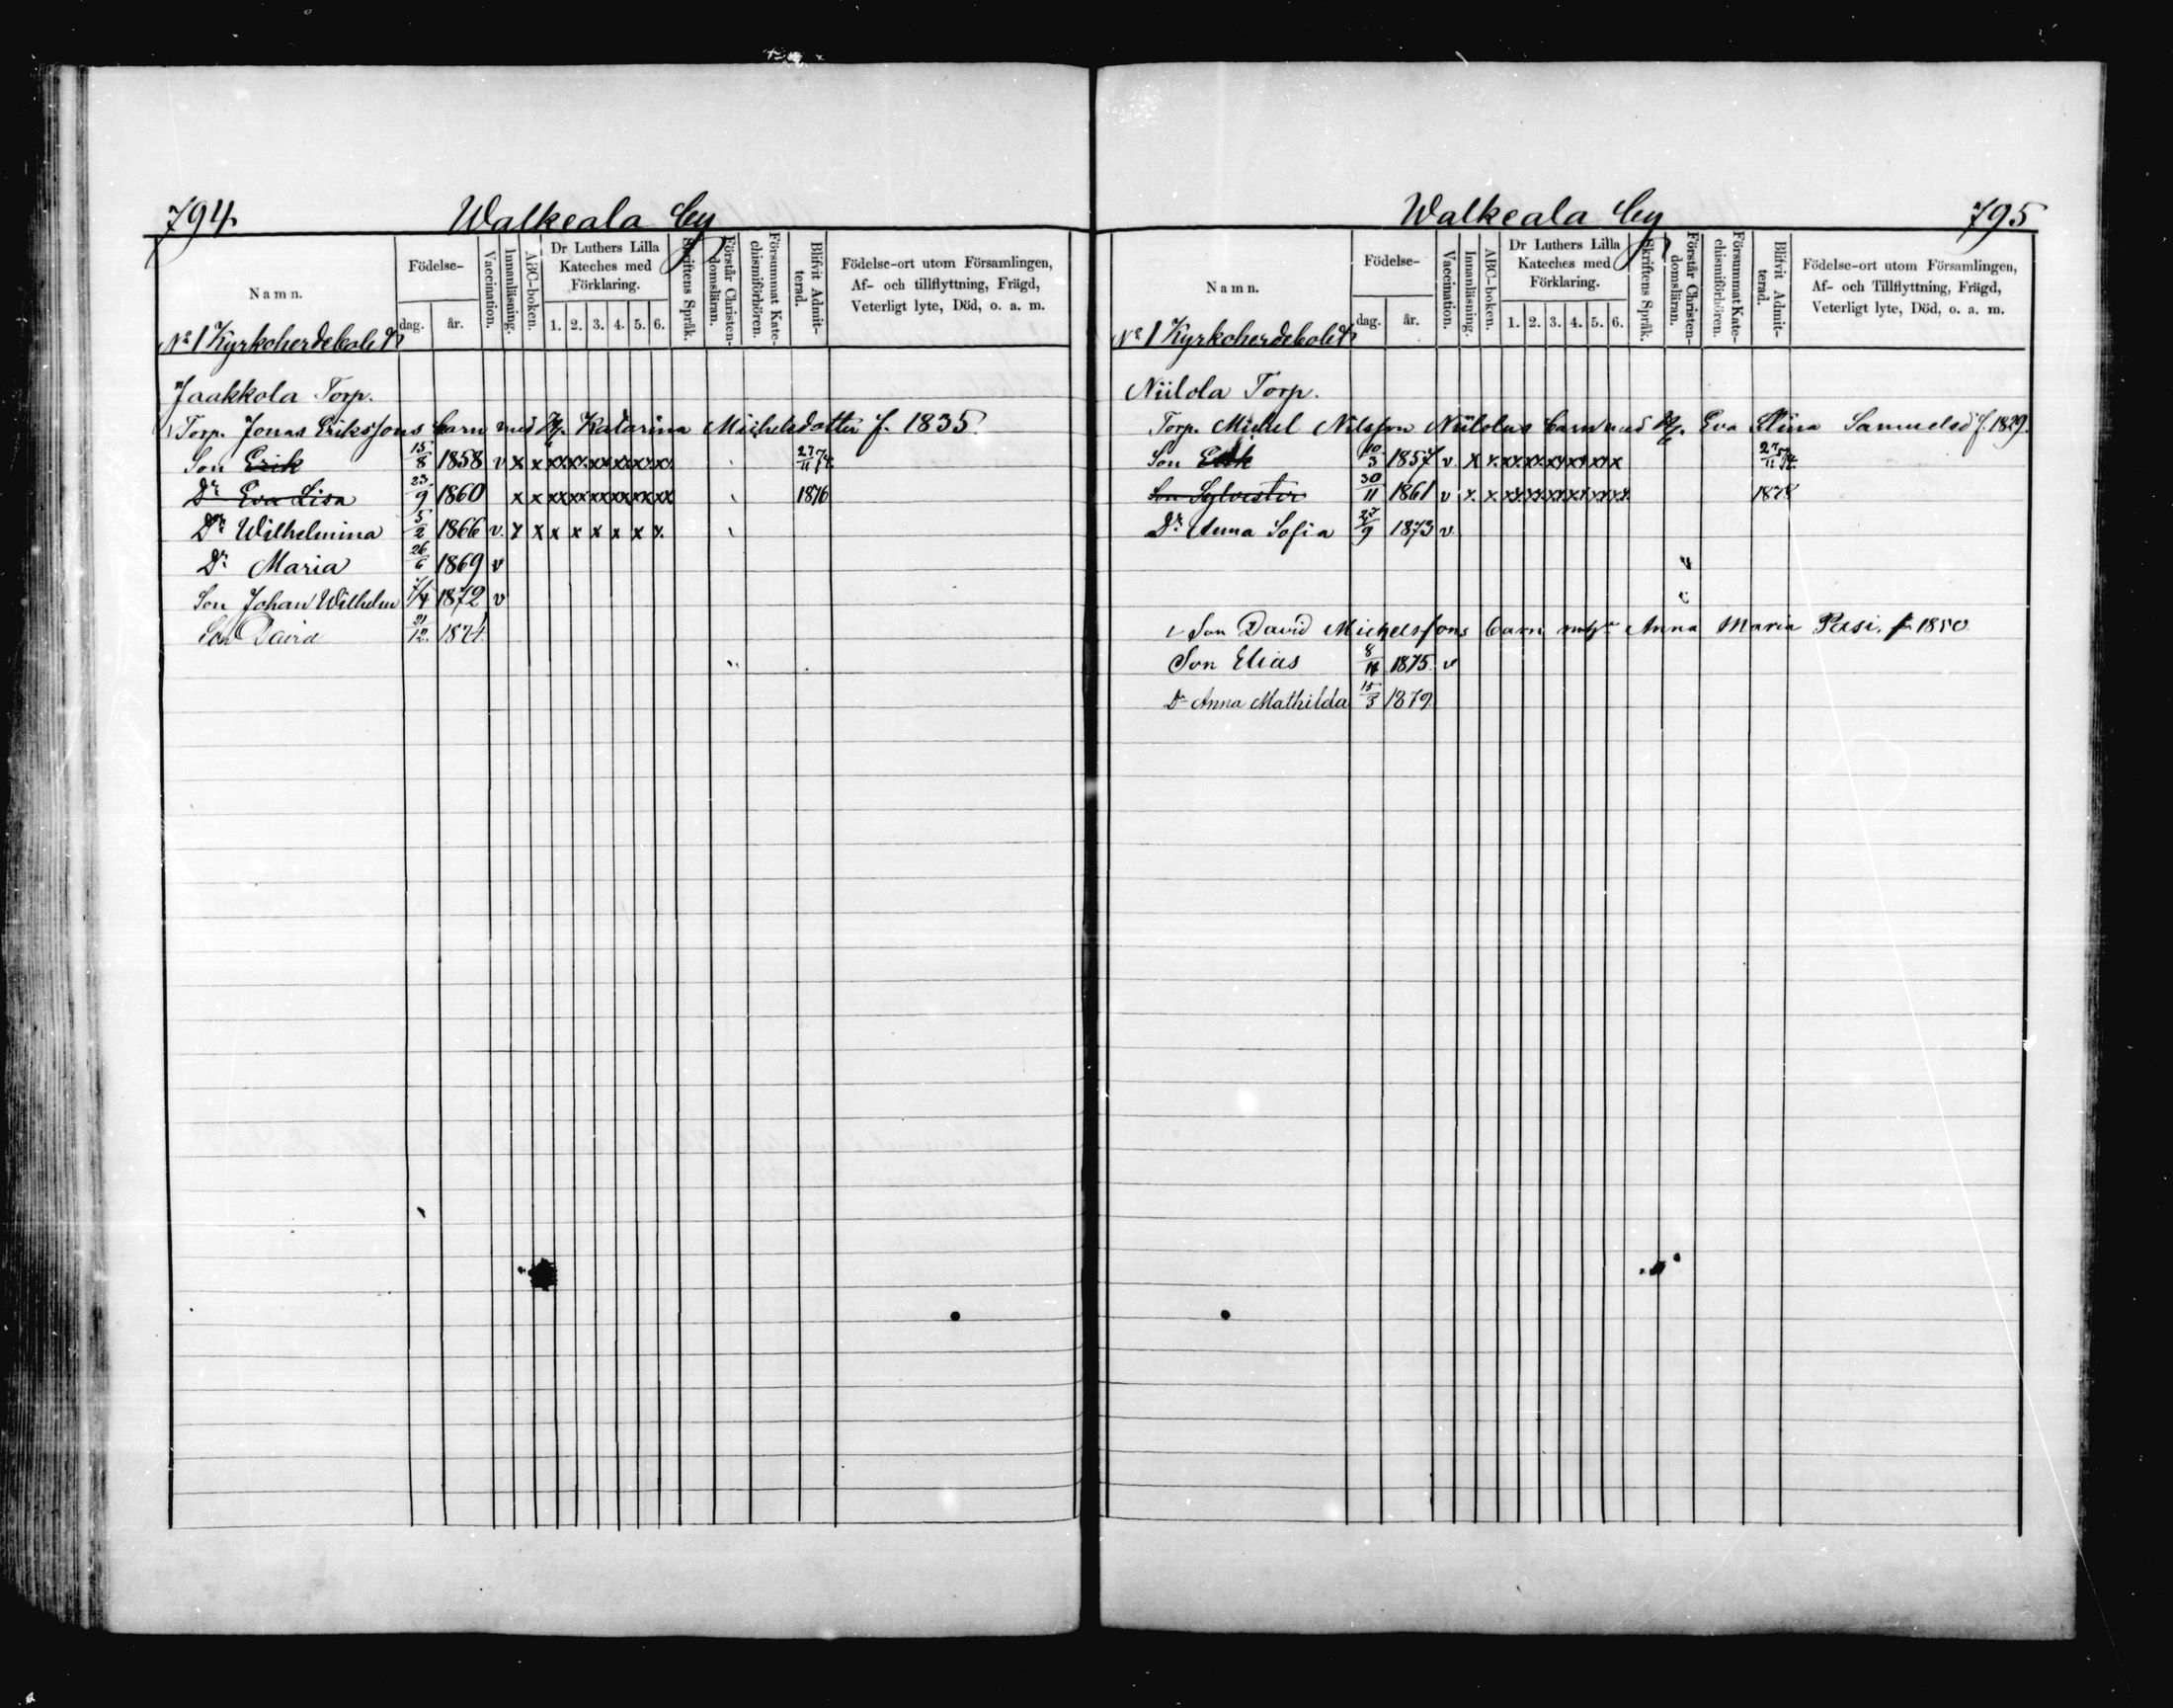 794.
Walkeala by
Namn.
Födelse-
dag.
år.
Vaccination.
Innanläsning.
ABC-boken.
Dr Luthers Lilla Kateches med Förklaring.
1. 2. 3. 4. 5. 6.
Skriftens Språk.
Förstår Christen-domsläran.
Försummat Kate-chismiförhören.
Blifvit Admit-terad.
Födelse-ort utom Församlingen,
Af- och tillflyttning, Frägd,
Veterligt lyte, Död, o. a. m.
No 1 Kyrkoherdebolet
Jaakkola Torp.
Torp. Jonas Erikssons barn med H. Katarina Michelsdotter f. 1835.
Son Erik 15/8 1858 v x x xx xx xx xx xx xx 27/11 74
Dr Eva Lisa 23/9 1860 x x xx xx xx xx xx xx 1876
Dr Wilhelmina 5/2 1866 v. x x x x x x x x
Dr Maria 26/6 1869 v
Son Johan Wilhelm 1872 v
Son David 21/12. 1874
Walkeala by
795
Namn.
Födelse-
dag.
år.
Vaccination.
Innanläsning.
ABC-boken.
Dr Luthers Lilla Kateches med Förklaring.
1. 2. 3. 4. 5. 6.
Skriftens Språk.
Förstår Christen-domsläran.
Försummat Kate-chismiförhören.
Blifvit Admit-terad.
Födelse-ort utom Församlingen,
Af- och Tillflyttning, Frägd,
Veterligt lyte, Död, o. a. m.
No 1 Kyrkoherdebolet
Niilola Torp.
Torp. Michel Nilsson Niilolas barn med H. Eva Stina Samuelsd f. 1829.
Son Erik 10/3 1857 v x x xx xx xx xx xx xx
Son Sylvester 30/11 1861 v x x xx xx xx xx xx xx 1878
Dr Anna Sofia 27/9 1873 v.
Son David Michelssons barn Anna Maria Pesi, f. 1850
Son Elias 1875. v
Dr Anna Mathilda 15/3 1879.